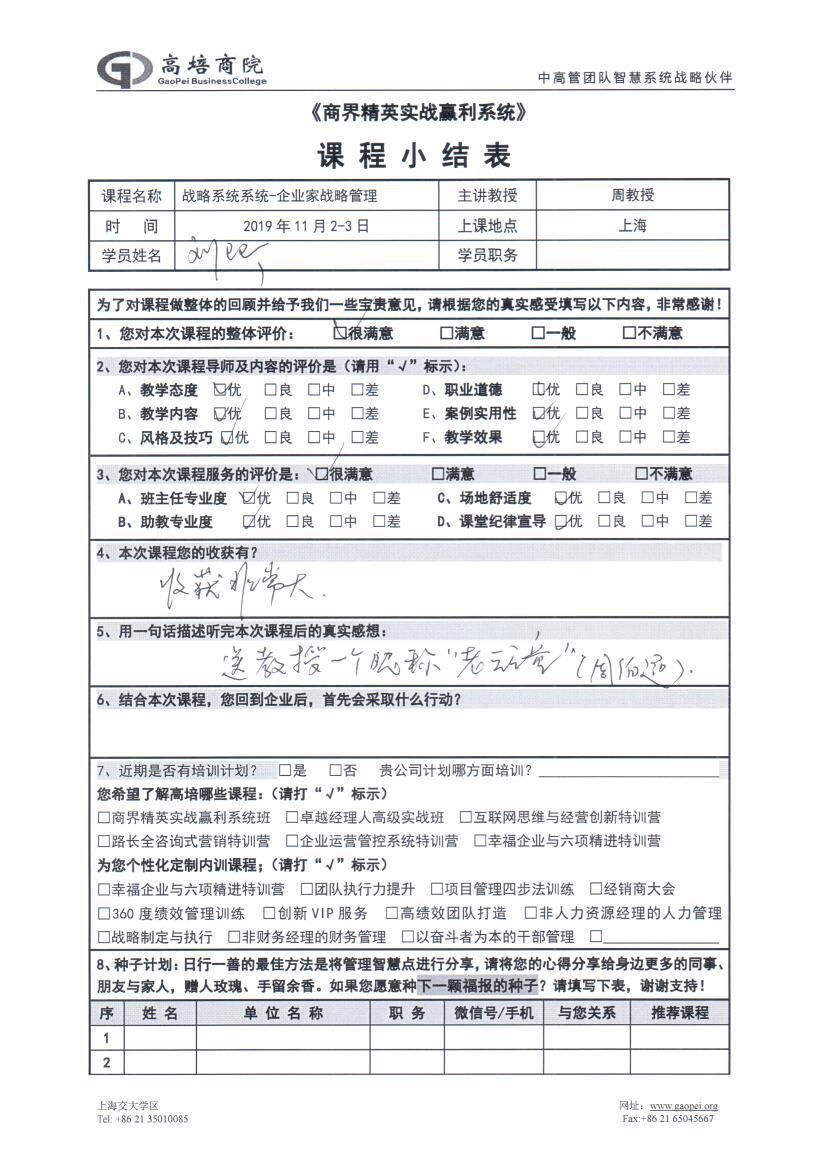 高培商院
GaoPei BusinessCollege
中高管团队智慧系统战略伙伴
《商界精英实战赢利系统》
课程小结表
课程名称 战略系统系统-企业家战略管理 主讲教授 周教授
时 间 2019年11月2-3日 上课地点 上海
学员姓名 学员职务
为了对课程做整体的回顾并给予我们一些宝贵意见，请根据您的真实感受填写以下内容，非常感谢！
1、您对本次课程的整体评价： ☑很满意 □满意 □一般 □不满意
2、您对本次课程导师及内容的评价是（请用“√”标示）：
A、教学态度 ☑优 □良 □中 □差 D、职业道德 ☑优 □良 □中 □差
B、教学内容 ☑优 □良 □中 □差 E、案例实用性 ☑优 □良 □中 □差
C、风格及技巧 ☑优 □良 □中 □差 F、教学效果 ☑优 □良 □中 □差
3、您对本次课程服务的评价是：☑很满意 □满意 □一般 □不满意
A、班主任专业度 ☑优 □良 □中 □差 C、场地舒适度 ☑优 □良 □中 □差
B、助教专业度 ☑优 □良 □中 □差 D、课堂纪律宣导 ☑优 □良 □中 □差
4、本次课程您的收获有？
收获非常大.
5、用一句话描述听完本次课程后的真实感想：
送教授一个昵称“老顽童”（周伯通）.
6、结合本次课程，您回到企业后，首先会采取什么行动？
7、近期是否有培训计划？ □是 □否 贵公司计划哪方面培训？
您希望了解高培哪些课程：（请打“√”标示）
□商界精英实战赢利系统班 □卓越经理人高级实战班 □互联网思维与经营创新特训营
□路长全咨询式营销特训营 □企业运营管控系统特训营 □幸福企业与六项精进特训营
为您个性化定制内训课程；（请打“√”标示）
□幸福企业与六项精进特训营 □团队执行力提升 □项目管理四步法训练 □经销商大会
□360度绩效管理训练 □创新VIP服务 □高绩效团队打造 □非人力资源经理的人力管理
□战略制定与执行 □非财务经理的财务管理 □以奋斗者为本的干部管理 □
8、种子计划：日行一善的最佳方法是将管理智慧点进行分享，请将您的心得分享给身边更多的同事、
朋友与家人，赠人玫瑰、手留余香。如果您愿意种下一颗福报的种子？请填写下表，谢谢支持！
序 姓名 单位名称 职务 微信号/手机 与您关系 推荐课程
1
2
上海交大学区 网址：www.gaopei.org
Tel: +86 21 35010085 Fax:+86 21 65045667